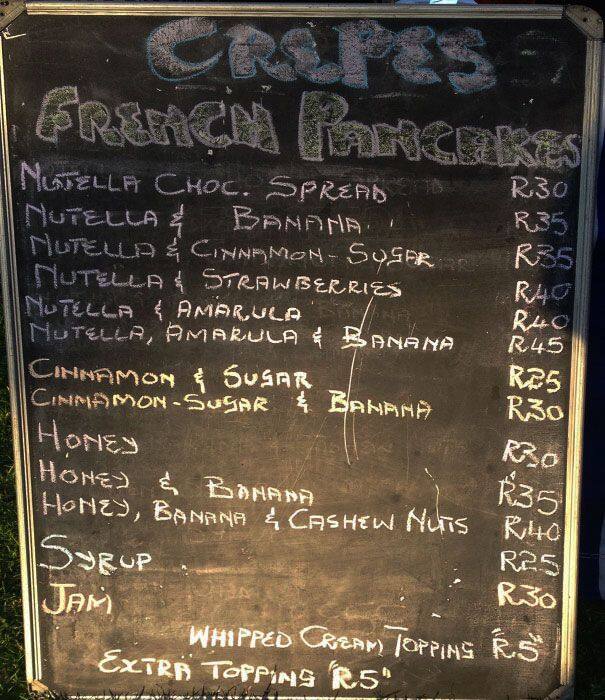 CREPES
FRENCH PANCAKES
NUTELLA CHOC. SPREAD R30
NUTELLA & BANANA R35
NUTELLA & CINNAMON-SUGAR R35
NUTELLA & STRAWBERRIES R40
NUTELLA & AMARULA R40
NUTELLA, AMARULA & BANANA R45
CINNAMON & SUGAR R25
CINNAMON-SUGAR & BANANA R30
HONEY R30
HONEY & BANANA R35
HONEY, BANANA & CASHEW NUTS R40
SYRUP R25
JAM R30
WHIPPED CREAM TOPPING "R5"
EXTRA TOPPING "R5"